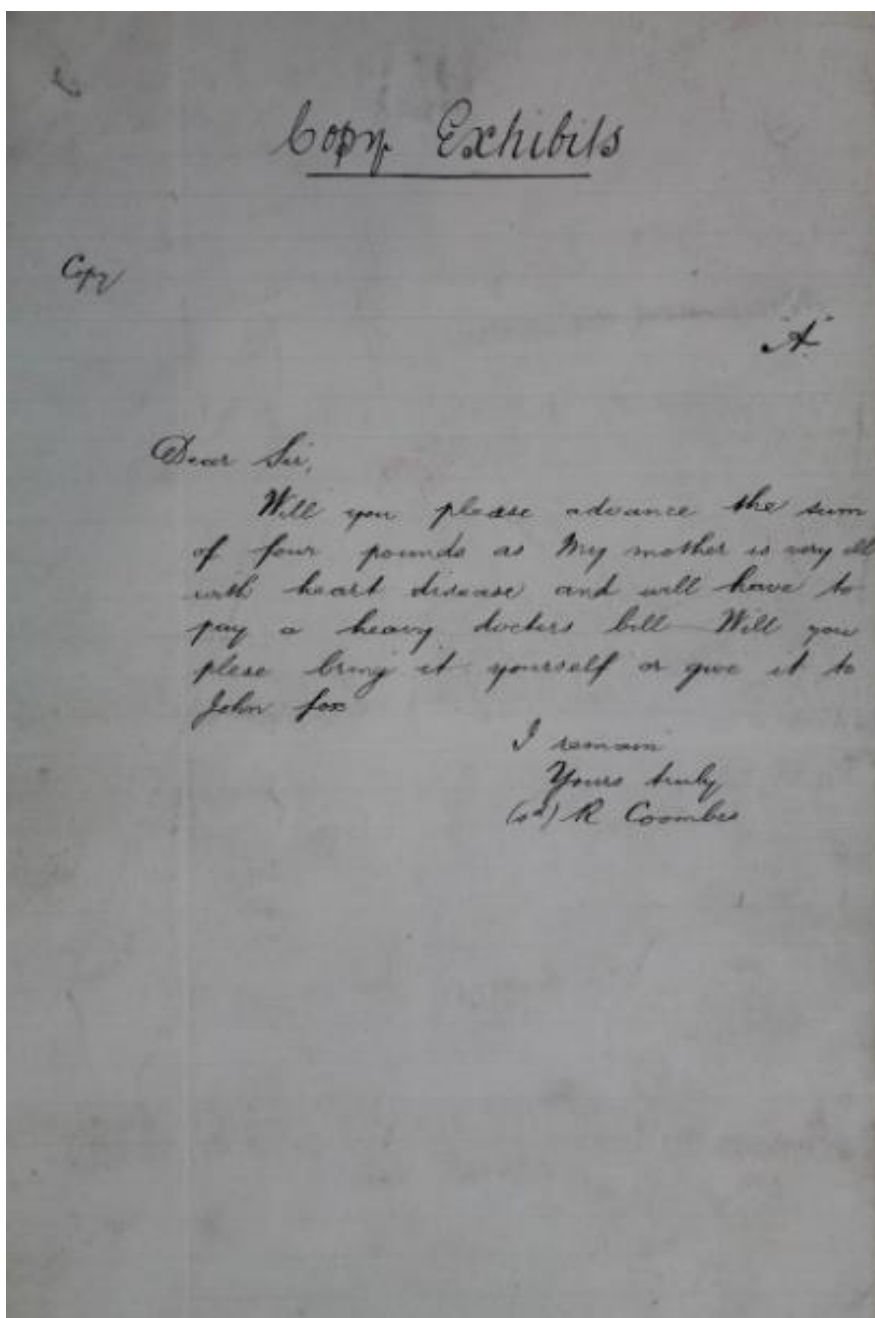 Copy Exhibits
Copy
"A"
Dear Sir,
Will you please advance the sum
of four pounds as My mother is very ill
with heart disease and will have to
pay a heavy doctors bill Will you
plese bring it yourself or give it to
John fox
I remain
Yours truly
(sd) R Coombes